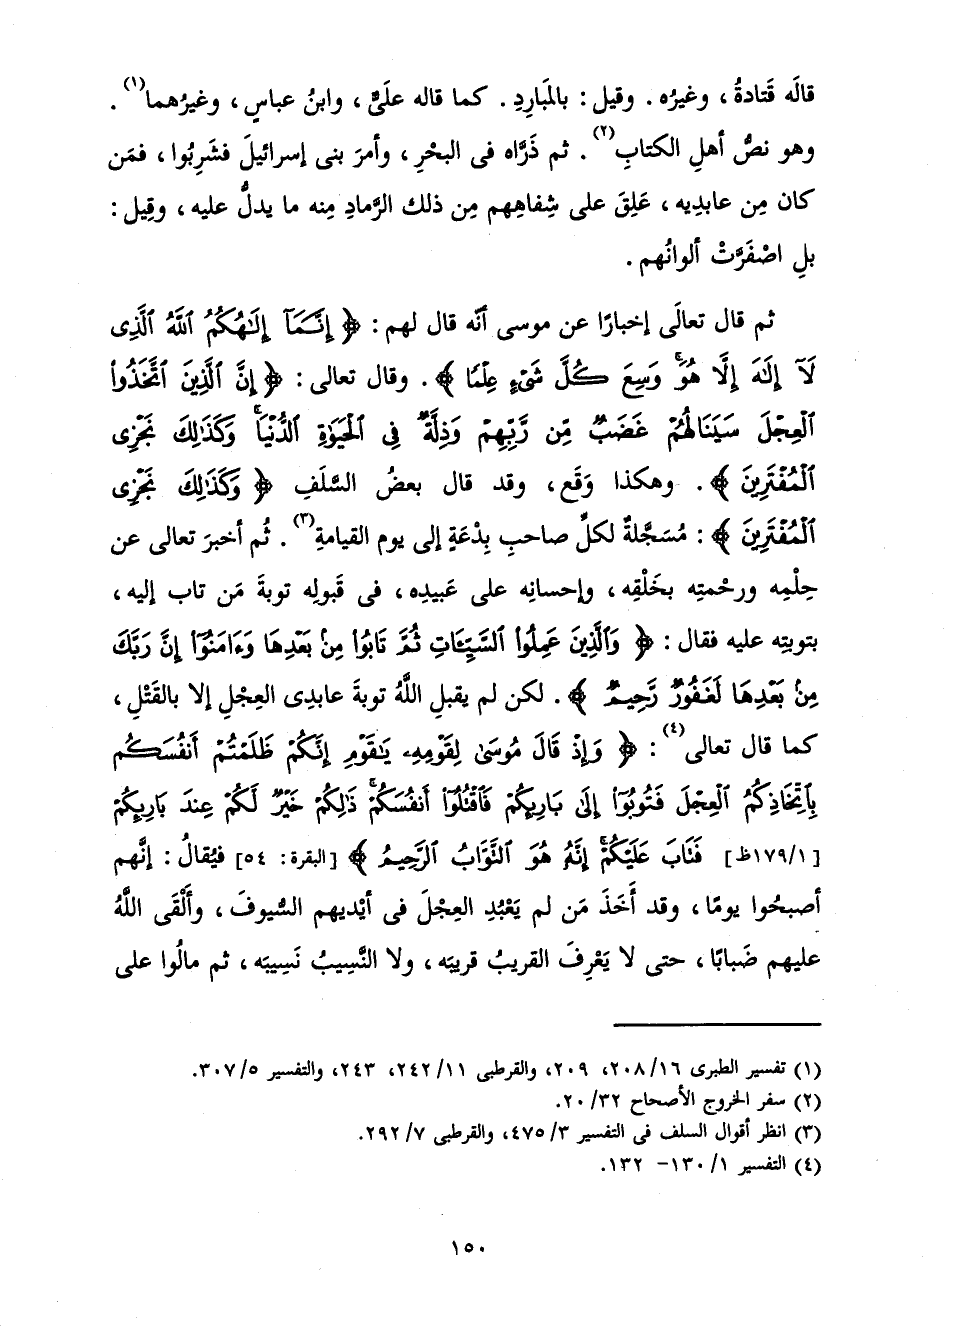 قالَه قَتادةُ ، وغيرُه . وقيل : بالمَبارِدِ . كما قاله علىٌّ ، وابنُ عباسٍ ، وغيرُهما(١) .
وهو نصُّ أهلِ الكتابِ(٢) . ثم ذَرَّاه فى البحْرِ ، وأمرَ بنى إسرائيلَ فشَرِبُوا ، فمَن
كان مِن عابدِيه ، عَلِقَ على شِفاهِهم مِن ذلك الرَّمادِ مِنه ما يدلُّ عليه ، وقِيل :
بلِ اصْفَرَّتْ ألوانُهم .
ثم قال تعالَى إخبارًا عن موسى أنَّه قال لهم : ﴿ إِنَّمَآ إِلَٰهُكُمُ ٱللَّهُ ٱلَّذِى
لَآ إِلَٰهَ إِلَّا هُوَۚ وَسِعَ كُلَّ شَىْءٍ عِلْمًا ﴾ . وقال تعالى : ﴿ إِنَّ ٱلَّذِينَ ٱتَّخَذُوا۟
ٱلْعِجْلَ سَيَنَالُهُمْ غَضَبٌ مِّن رَّبِّهِمْ وَذِلَّةٌ فِى ٱلْحَيَوٰةِ ٱلدُّنْيَاۚ وَكَذَٰلِكَ نَجْزِى
ٱلْمُفْتَرِينَ ﴾ . وهكذا وَقَع ، وقد قال بعضُ السَّلَفِ ﴿ وَكَذَٰلِكَ نَجْزِى
ٱلْمُفْتَرِينَ ﴾ : مُسَجَّلةٌ لكلِّ صاحبِ بِدْعَةٍ إلى يوم القيامةِ(٣) . ثُم أخبرَ تعالى عن
حِلْمِه ورحْمتِه بخَلْقِه ، وإحسانِه على عَبيدِه ، فى قَبولِه توبةَ مَن تاب إليه ،
بتوبتِه عليه فقال : ﴿ وَٱلَّذِينَ عَمِلُوا۟ ٱلسَّيِّـَٔاتِ ثُمَّ تَابُوا۟ مِنۢ بَعْدِهَا وَءَامَنُوٓا۟ إِنَّ رَبَّكَ
مِنۢ بَعْدِهَا لَغَفُورٌ رَّحِيمٌ ﴾ . لكن لم يقبلِ اللَّهُ توبةَ عابدى العِجْلِ إلا بالقَتْلِ ،
كما قال تعالى(٤) : ﴿ وَإِذْ قَالَ مُوسَىٰ لِقَوْمِهِۦ يَٰقَوْمِ إِنَّكُمْ ظَلَمْتُمْ أَنفُسَكُم
بِٱتِّخَاذِكُمُ ٱلْعِجْلَ فَتُوبُوٓا۟ إِلَىٰ بَارِئِكُمْ فَٱقْتُلُوٓا۟ أَنفُسَكُمْۚ ذَٰلِكُمْ خَيْرٌ لَّكُمْ عِندَ بَارِئِكُمْ
[١٧٩/١ظ] فَتَابَ عَلَيْكُمْۚ إِنَّهُۥ هُوَ ٱلتَّوَّابُ ٱلرَّحِيمُ ﴾ [البقرة: ٥٤] فيُقالُ : إنَّهم
أصبحُوا يومًا ، وقد أَخَذَ مَن لم يَعْبُدِ العِجْلَ فى أيْديهم السُّيوفَ ، وألْقَى اللَّهُ
عليهم ضَبابًا ، حتى لا يَعْرِفَ القريبُ قريبَه ، ولا النَّسِيبُ نَسِيبَه ، ثم مالُوا على
(١) تفسير الطبرى ٢٠٨/١٦، ٢٠٩، والقرطبى ٢٤٢/١١، ٢٤٣، والتفسير ٣٠٧/٥.
(٢) سفر الخروج الأصحاح ٢٠/٣٢.
(٣) انظر أقوال السلف فى التفسير ٤٧٥/٣، والقرطبى ٢٩٢/٧.
(٤) التفسير ١٣٠/١ - ١٣٢.
١٥٠